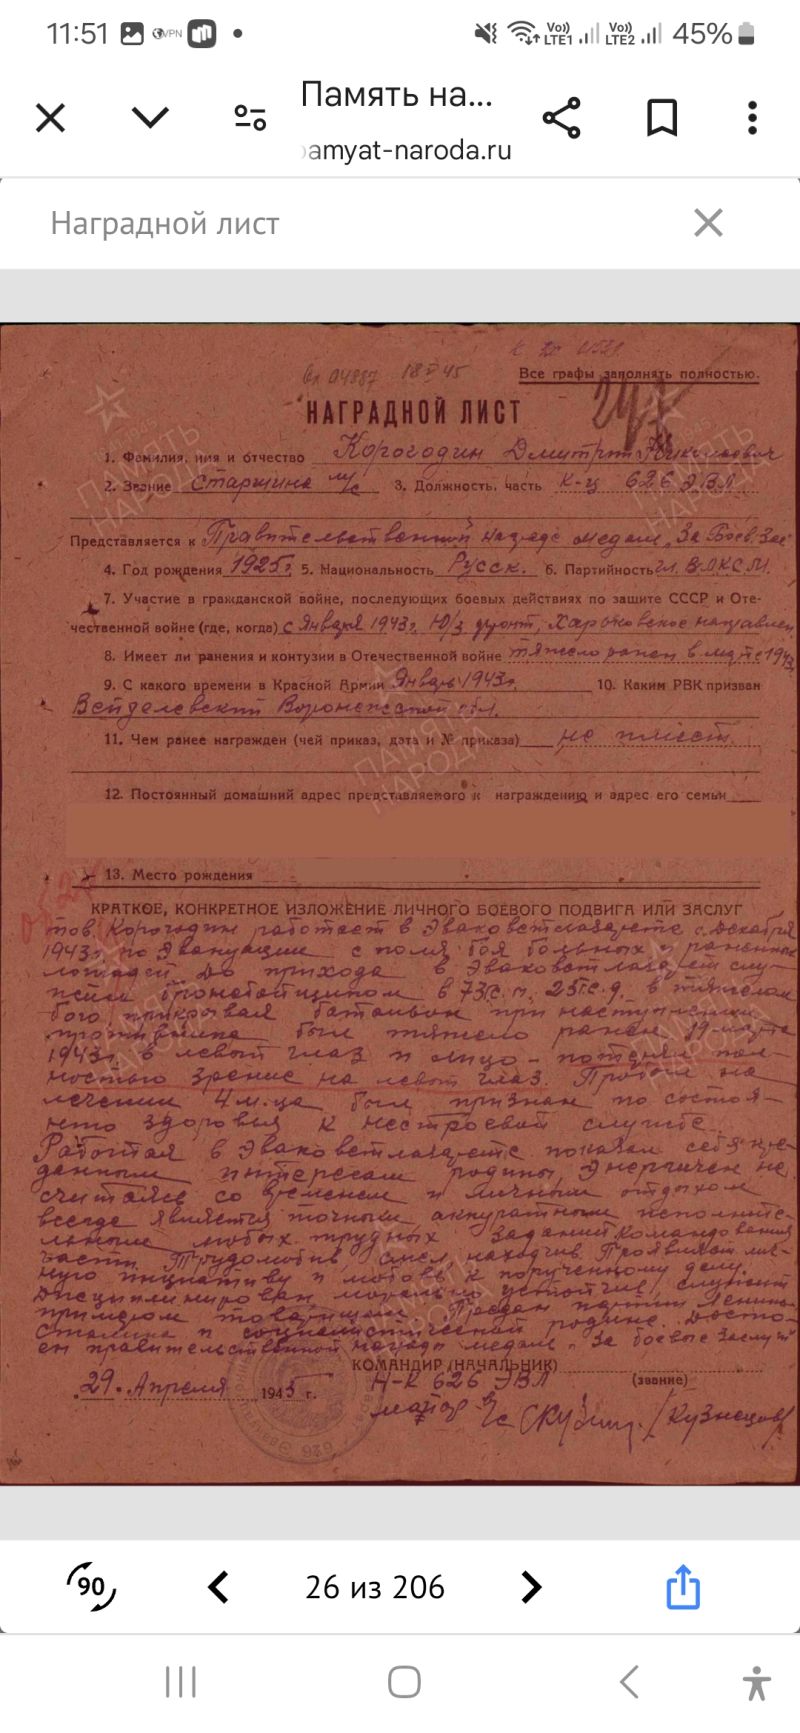 11:51 VPN Vo)) LTE1 Vo)) LTE2 45%
Память на...
amyat-naroda.ru
Наградной лист
18 V 45
Все графы заполнять полностью.
НАГРАДНОЙ ЛИСТ
1. Фамилия, имя и отчество Корогодин Дмитрий Николаевич
2. Звание Старшина м/с 3. Должность, часть к-ц 626 ЭВЛ
Представляется к Правительственной награде медаль „За Боев. Зас
4. Год рождения 1925г. 5. Национальность Русск. 6. Партийность чл. ВЛКСМ.
7. Участие в гражданской войне, последующих боевых действиях по защите СССР и Оте-
чественной войне (где, когда) с Января 1943г. Ю/З фронт, Харьковское направлен
8. Имеет ли ранения и контузии в Отечественной войне тяжело ранен в марте 1943
9. С какого времени в Красной Армии Январь 1943г. 10. Каким РВК призван
Вейделевский Воронежской обл.
11. Чем ранее награжден (чей приказ, дата и № приказа) не имеет
12. Постоянный домашний адрес представляемого к награждению и адрес его семьи
13. Место рождения
КРАТКОЕ, КОНКРЕТНОЕ ИЗЛОЖЕНИЕ ЛИЧНОГО БОЕВОГО ПОДВИГА ИЛИ ЗАСЛУГ
тов. Корогодин работает в Эваковетлазарете с декабря
1943г. по эвакуации с поля боя больных и раненных
лошадей. До прихода в Эваковетлазарет слу-
жил бронебойщиком в 73 г.с.п. 25 г.с.д. в тяжелом
бою прикрывая батальон при наступлении
противника был тяжело ранен 19 марта
1943г. в левый глаз и лицо – потерял пол-
ностью зрение на левый глаз. Пробыл на
лечении 4 м-ца был признан по состоя-
нию здоровья к нестроевой службе.
Работая в Эваковетлазарете показал себя пре-
данным интересам родины, энергичен не
считаясь со временем и личным отдыхом
всегда является точным аккуратным исполните-
лем любых трудных заданий Командования
части. Трудолюбив, смел находчив. Проявляет лич-
ную инциативу и любовь к порученному делу.
Дисциплинирован, морально устойчив, служит
примером товарищам. Предан партии Ленина-
Сталина и социалистической родине. Досто-
ен правительственной награды медаль „За боевые заслуги"
КОМАНДИР (НАЧАЛЬНИК)
Н-к 626 ЭВЛ (звание)
29. Апреля 1945 г.
майор в/с /Кузнецов/
626
ПАМЯТЬ НАРОДА
26 из 206
90